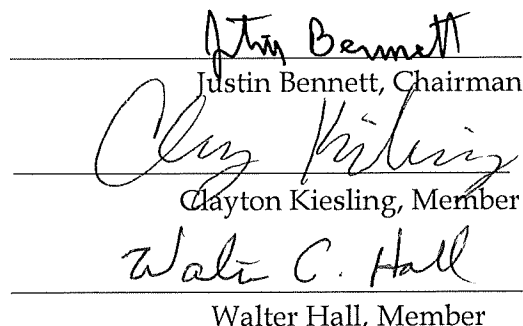 Justin Bennett
Justin Bennett, Chairman
Clay Kiesling
Clayton Kiesling, Member
Walter C. Hall
Walter Hall, Member